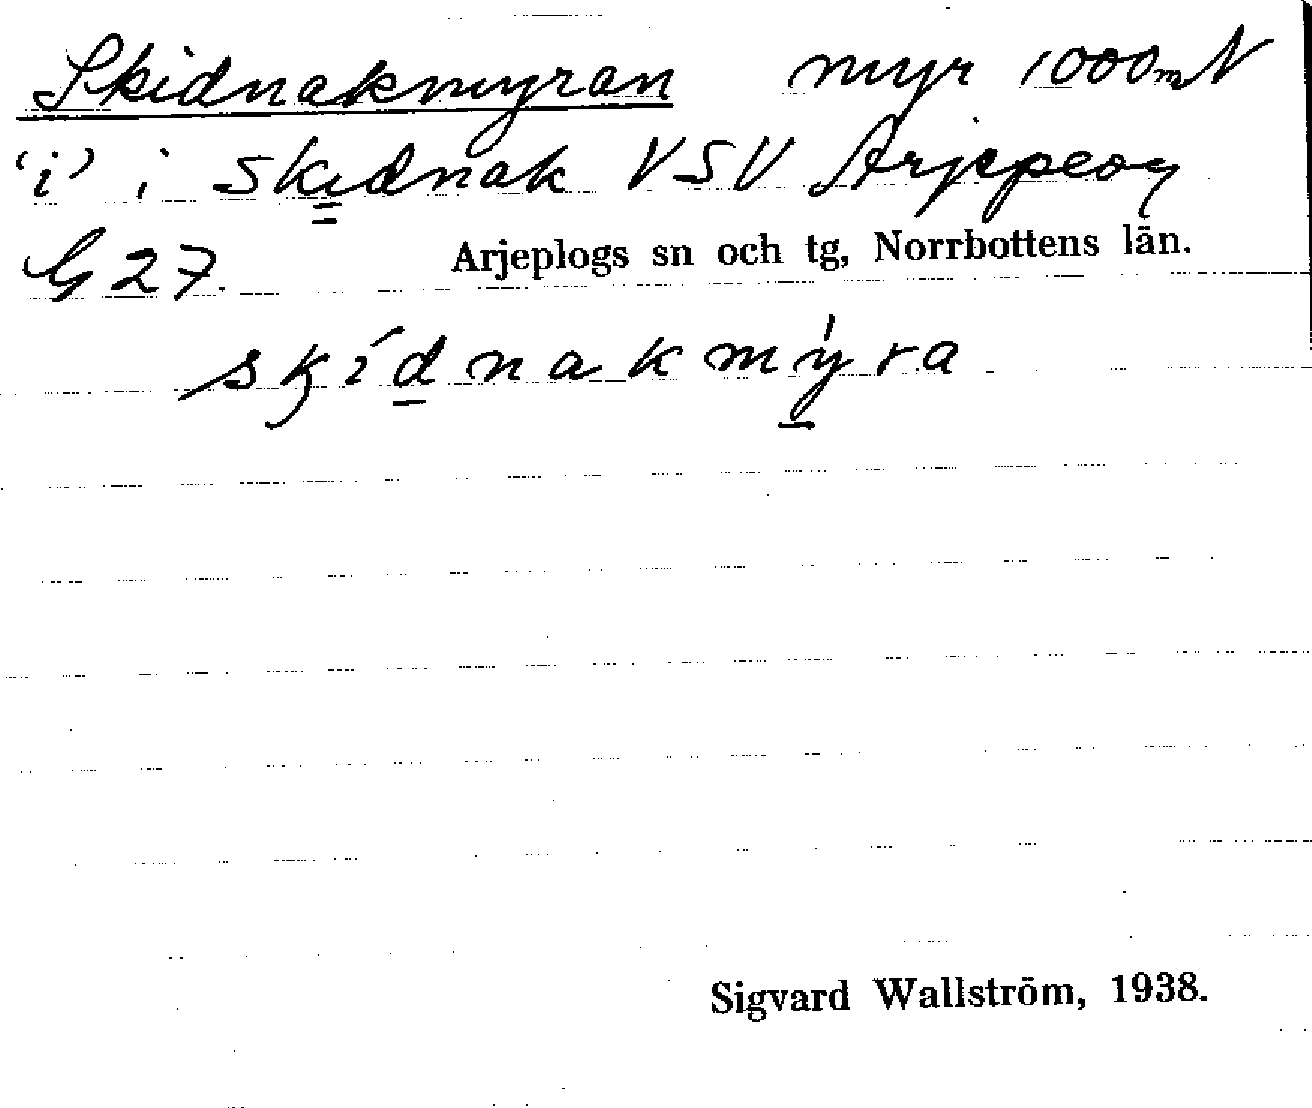 Skidnakmyran myr 1000m N
'i' i Skidnak VSV Arjeplog
G 27.
Arjeplogs sn och tg, Norrbottens län.
skídnakmýra
Sigvard Wallström, 1938.